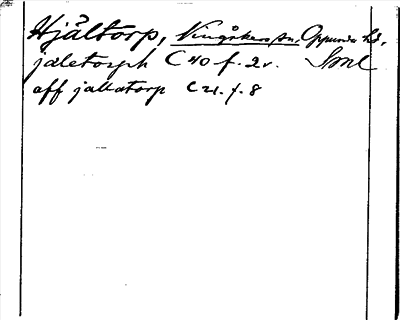 Hjältorp, Vingåkers sn, Oppunda hd, Sml
jaletorph C 40 f. 2v.
aff jallatorp C 21. f. 8